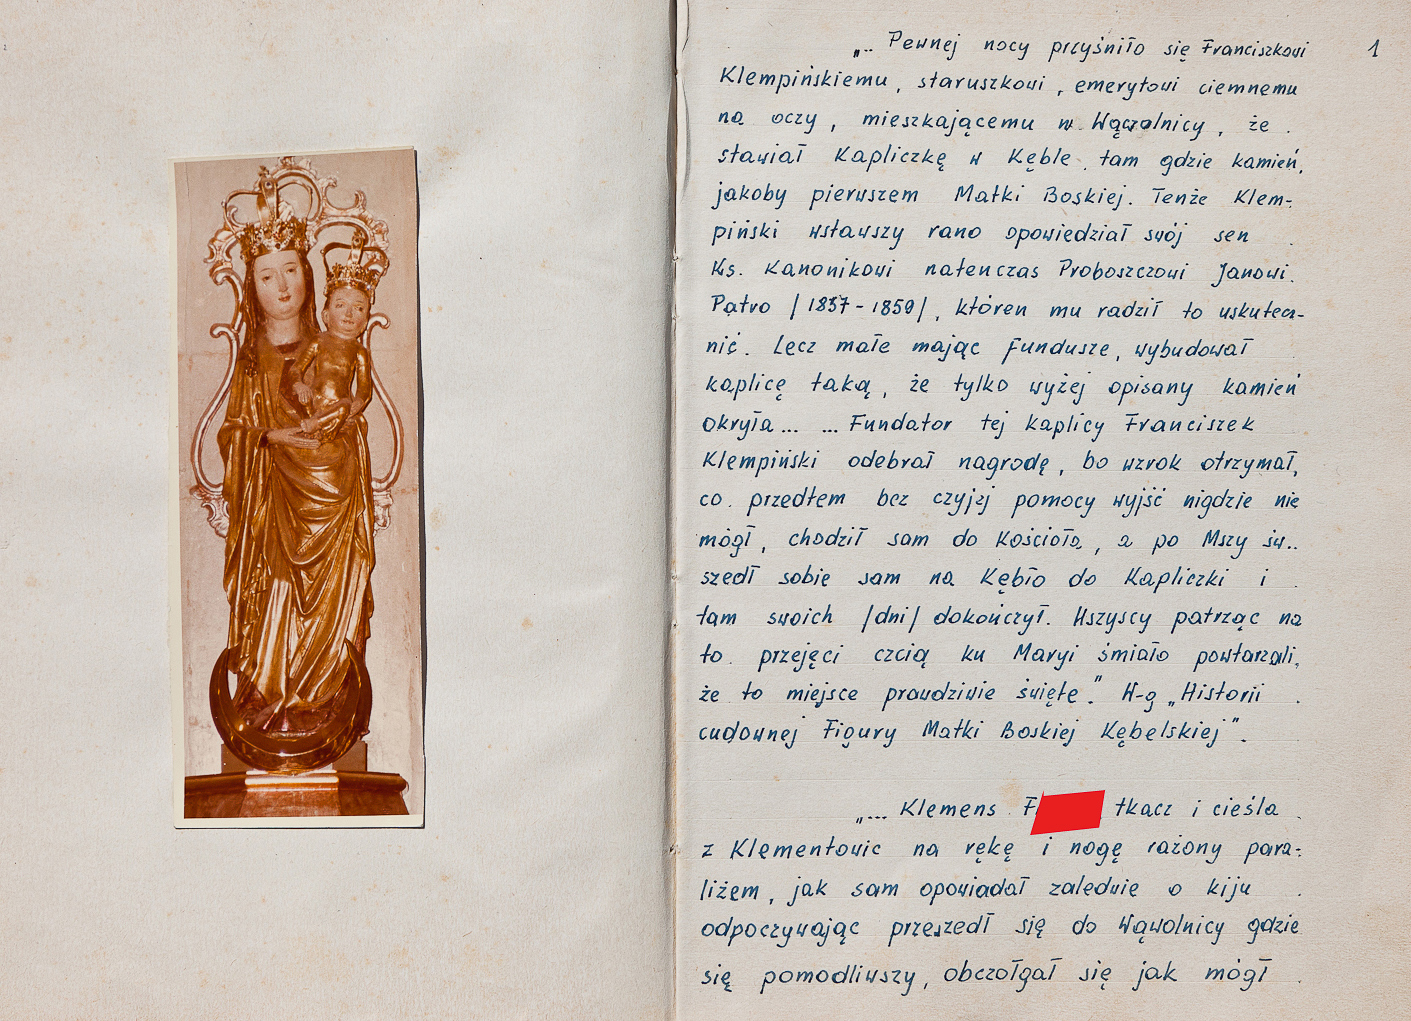 „.. Pewnej nocy przyśniło się Franciszkowi 1
Klempińskiemu, staruszkowi, emerytowi ciemnemu
na oczy, mieszkającemu w Wąwolnicy, że
stawiał Kapliczkę w Kęble tam gdzie kamień,
jakoby pierwszem Matki Boskiej. Tenże Klem-
piński wstawszy rano opowiedział swój sen
Ks. Kanonikowi natenczas Proboszczowi Janowi
Patro /1837-1859/, któren mu radził to uskutecz-
nić. Lecz małe mając fundusze, wybudował
kaplicę taką, że tylko wyżej opisany kamień
okryła... ... Fundator tej kaplicy Franciszek
Klempiński odebrał nagrodę, bo wzrok otrzymał,
co przedtem bez czyjej pomocy wyjść nigdzie nie
mógł, chodził sam do Kościoła, a po Mszy św..
szedł sobie sam na Kębło do Kapliczki i
tam swoich /dni/ dokończył. Wszyscy patrząc na
to przejęci czcią ku Maryi śmiało powtarzali,
że to miejsce prawdziwie święte." W-g „Historii
cudownej Figury Matki Boskiej Kębelskiej".
„... Klemens F tkacz i cieśla
z Klementowic na rękę i nogę rażony para-
liżem, jak sam opowiadał zaledwie o kiju
odpoczywając przeszedł się do Wąwolnicy gdzie
się pomodliwszy, obczołgał się jak mógł